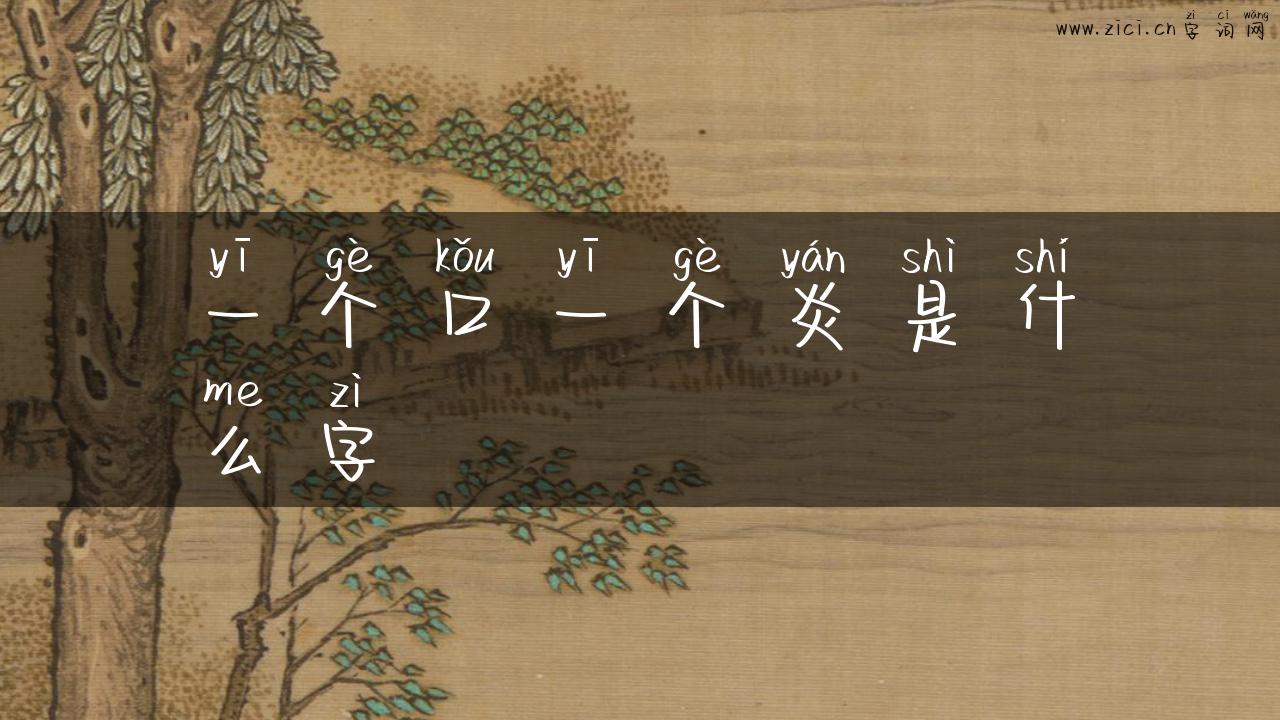 zì cí wǎng
www.zici.cn 字词网
yī gè kǒu yī gè yán shì shí
一个口一个炎是什
me zì
么字